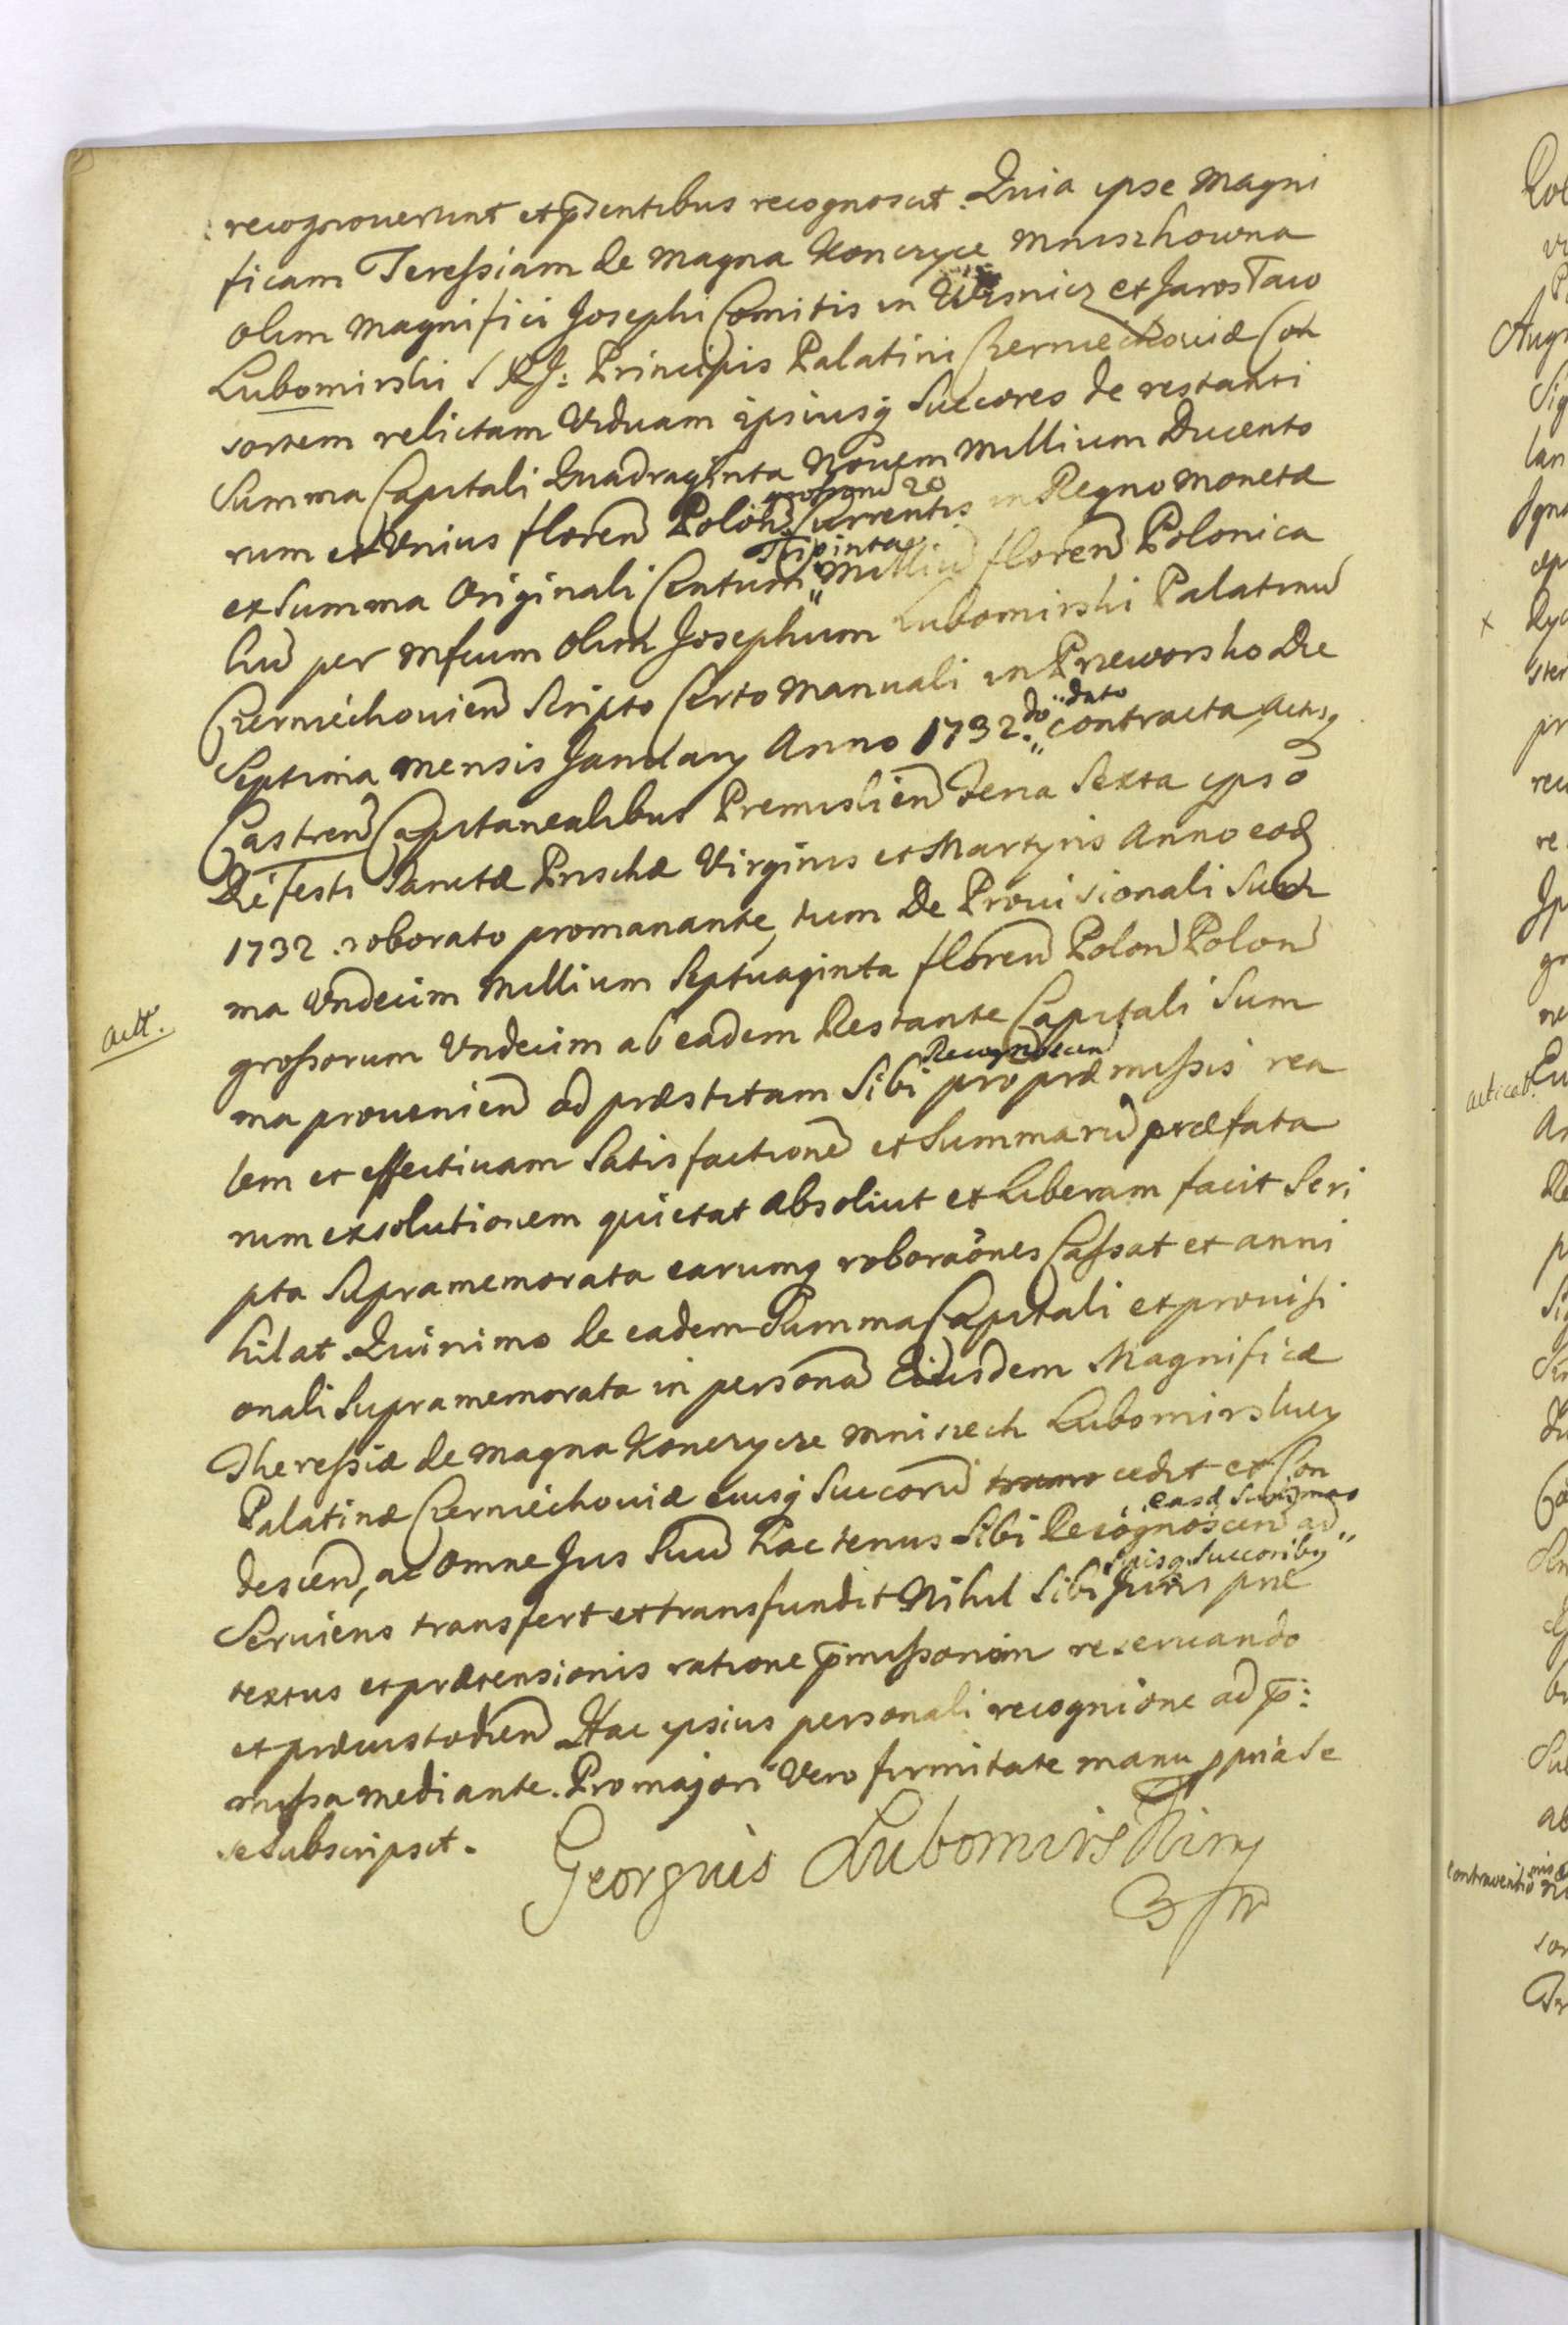 recognoverunt et p̄sentibus recognoscit. Quia ipse Magni
ficam Teressiam de Magna Konczyce Mniszkowna
olim Magnifici Josephi Comitis in Wisnicz et Jarosław
Lubomirski S R J: Principis Palatini Czerniechoviæ Con
sortem relictam Viduam ipsiusq Succores de restanti
Summa Capitali Quadraginta Novem Millium Ducento
grossorū 20
rum et Unius floren Polon Currentis in Regno Monetæ
Triginta
ex Summa Originali Centum " Milliū floren Polonica
liu per Mficum olim Josephum Lubomirski Palatinu
Czerniechovien Scripto Certo Manuali in Przeworsko Die
do dato
Septima Mensis Januarÿ Anno 1732. " contracta, Actisq
Castren Capitanealibus Premislien Feria Sexta ipso
Die festi Sanctæ Priscæ Virginis et Martyris Anno eod
1732. roborato promanante, tum De Provisionali Sum
ma Undecim Millium Septuaginta floren Polon Polon
act.
grossorum Undecim ab eadem Restante Capitali Sum
Recognoscen
ma provenien ad præstitam Sibi pro præmissis rea
lem et effectivam Satisfactione et Summarū præfata
rum exsolutionem quietat absolvit et Liberam facit Scri
pta Supramemorata earumq roboraōnes Cassat et anni
hilat. Quinimo de eadem Summa Capitali et provisi
onali Supramemorata in persona Eiusdem Magnificæ
Theressiæ de Magna Konczycze Mniszech Lubomirskiey
Palatinæ Czerniechoviæ eiusq Succorū cedit et Con
easd Summas
descen, ac omne Jus Suū hactenus Sibi Recognoscen ad "
Suisq Succoriby
Serviens transfert et transfundit Nihil Sibi Juris præ
textus et prætensionis ratione p̄missorum reservando
et præcustodien Hac ipsius personali recognione ad p̄:
missa mediante. Pro majori Vero firmitate manu ppria Se
se Subscripsit.
Georgius Lubomirski mp